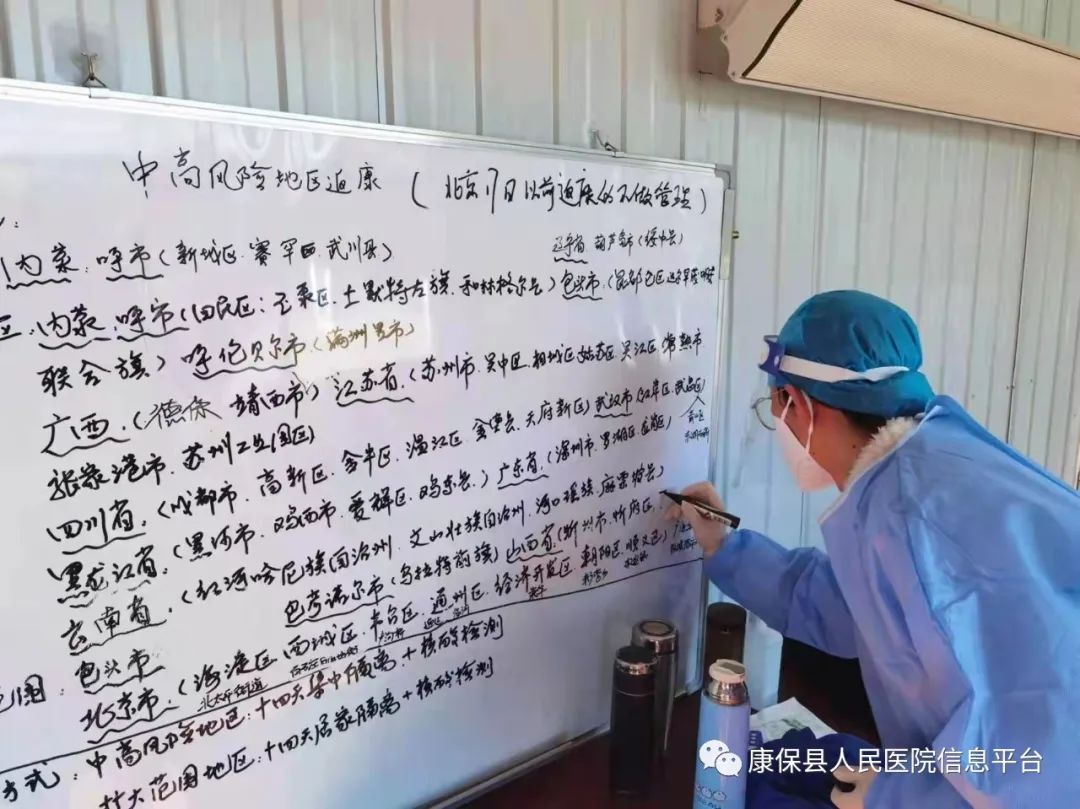 中高风险地区返康(北京17日以前返康的不做管理)
内蒙:呼市(新城区、赛罕区、武川县)
辽宁省 葫芦岛市(绥中县)
区:内蒙、呼市(回民区:玉泉区、土默特左旗、和林格尔县)包头市、(昆都仑区
联合旗)呼伦贝尔市(满洲里市)
广西、(德保 靖西市)江苏省、(苏州市、吴中区、相城区、姑苏区、吴江区、常熟市
张家港市、苏州工业园区)
四川省、(成都市、高新区、金牛区、温江区、金堂县、天府新区)武汉市(江岸区、武昌区)
黑龙江省、(黑河市、鸡西市、爱辉区、鸡东县、)广东省、(深圳市、罗湖区、龙岗区)
云南省、(红河哈尼族自治州、文山壮族自治州、河口瑶族、麻栗坡县、
包头市 巴彦淖尔市(乌拉特前旗)山西省(忻州市、忻府区、
范围:北京市、(海淀区、西城区、丰台区、通州区、经济开发区、朝阳区、顺义区)
北太平街道
方式:中高风险地区:十四天集中隔离+核酸检测
扩大范围地区:十四天居家隔离+核酸检测
康保县人民医院信息平台